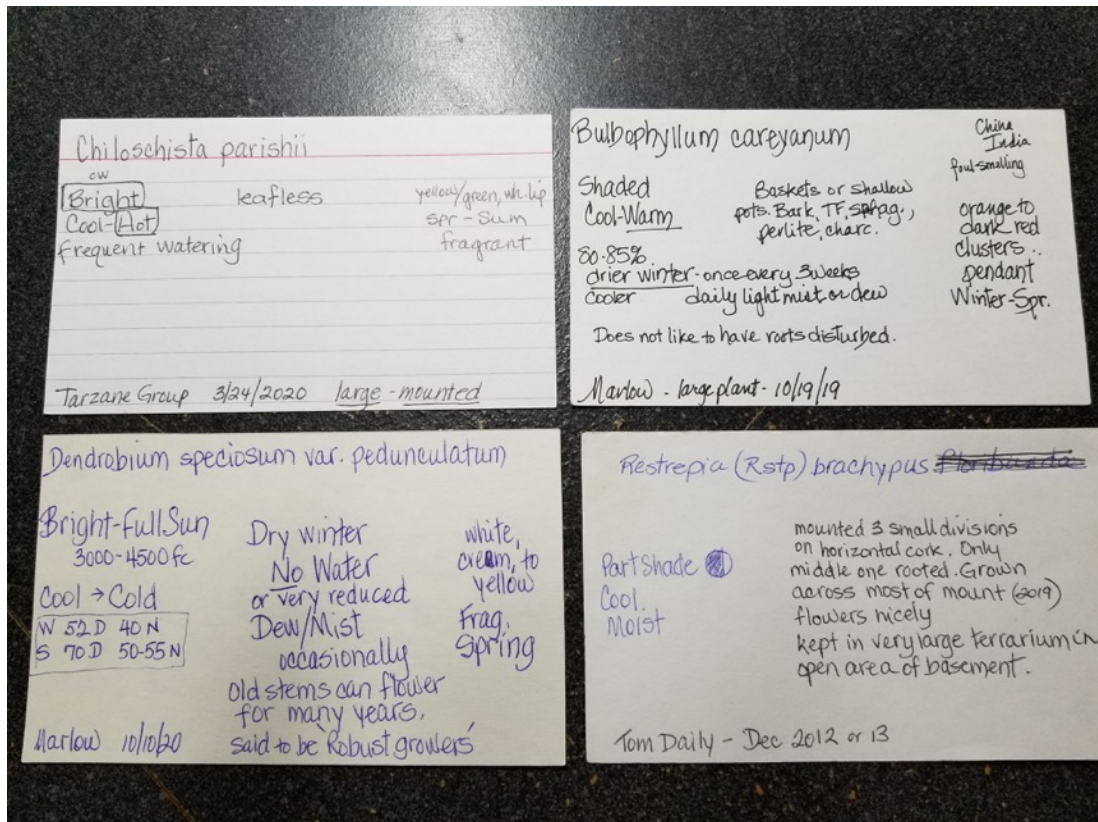 Chiloschista parishii
cw
Bright leafless yellow/green, wh. lip
Cool-Hot spr-Sum
frequent watering fragrant
Tarzane Group 3/24/2020 large-mounted
Bulbophyllum careyanum
China
India
foul-smelling
Shaded
Cool-Warm
Baskets or shallow
pots. Bark, TF, sphag.,
perlite, charc.
orange to
dark red
clusters
pendant
Winter-Spr.
80-85%
drier winter-once every 3 weeks
cooler daily light mist or dew
Does not like to have roots disturbed.
Marlow - large plant - 10/19/19
Dendrobium speciosum var. pedunculatum
Bright-Full Sun
3000-4500 fc
Cool → Cold
W 52D 40N
S 70D 50-55N
Dry winter
No Water
or very reduced
Dew/Mist
occasionally
white,
cream, to
yellow
Frag.
Spring
Old stems can flower
for many years.
said to be 'Robust growers'
Marlow 10/10/20
Restrepia (Rstp) brachypus floribunda
Part Shade
Cool.
Moist
mounted 3 small divisions
on horizontal cork. Only
middle one rooted. Grown
across most of mount (2019)
flowers nicely
kept in very large terrarium in
open area of basement.
Tom Daily - Dec 2012 or 13